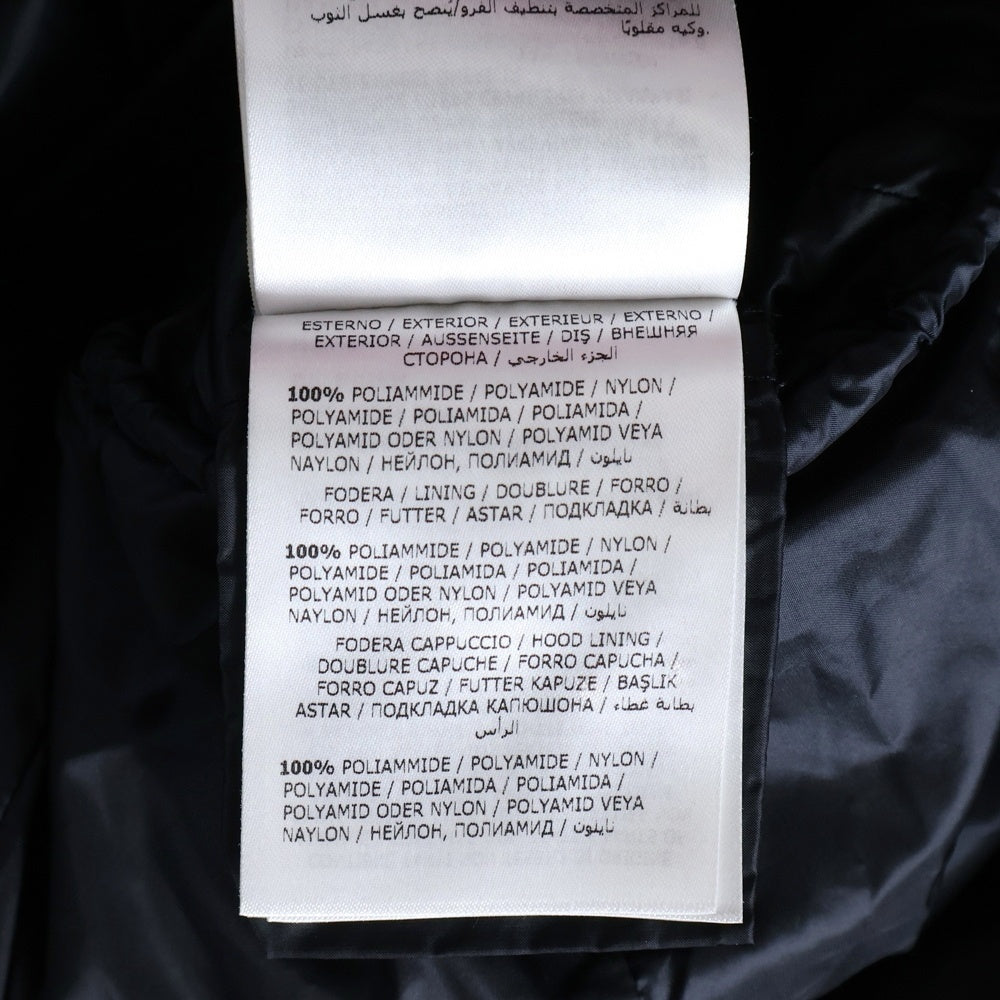 للمراكز المتخصصة بتنظيف الفرو/يُنصح بغسل الثوب
وكيه مقلوبًا.
ESTERNO / EXTERIOR / EXTERIEUR / EXTERNO /
EXTERIOR / AUSSENSEITE / DIŞ / ВНЕШНЯЯ
СТОРОНА / الجزء الخارجي
100% POLIAMMIDE / POLYAMIDE / NYLON /
POLYAMIDE / POLIAMIDA / POLIAMIDA /
POLYAMID ODER NYLON / POLYAMID VEYA
NAYLON / НЕЙЛОН, ПОЛИАМИД / نايلون
FODERA / LINING / DOUBLURE / FORRO /
FORRO / FUTTER / ASTAR / ПОДКЛАДКА / بطانة
100% POLIAMMIDE / POLYAMIDE / NYLON /
POLYAMIDE / POLIAMIDA / POLIAMIDA /
POLYAMID ODER NYLON / POLYAMID VEYA
NAYLON / НЕЙЛОН, ПОЛИАМИД / نايلون
FODERA CAPPUCCIO / HOOD LINING /
DOUBLURE CAPUCHE / FORRO CAPUCHA /
FORRO CAPUZ / FUTTER KAPUZE / BAŞLIK
ASTAR / ПОДКЛАДКА КАПЮШОНА / بطانة غطاء
الرأس
100% POLIAMMIDE / POLYAMIDE / NYLON /
POLYAMIDE / POLIAMIDA / POLIAMIDA /
POLYAMID ODER NYLON / POLYAMID VEYA
NAYLON / НЕЙЛОН, ПОЛИАМИД / نايلون